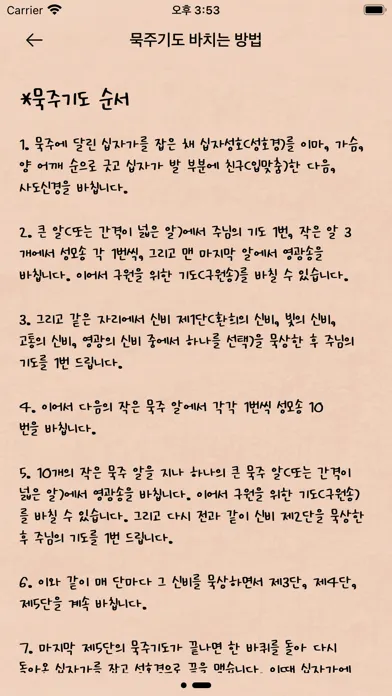 Carrier 오후 3:53
묵주기도 바치는 방법
*묵주기도 순서
1. 묵주에 달린 십자가를 잡은 채 십자성호(성호경)를 이마, 가슴,
양 어깨 순으로 긋고 십자가 발 부분에 친구(입맞춤)한 다음,
사도신경을 바칩니다.
2. 큰 알(또는 간격이 넓은 알)에서 주님의 기도 1번, 작은 알 3
개에서 성모송 각 1번씩, 그리고 맨 마지막 알에서 영광송을
바칩니다. 이어서 구원을 위한 기도(구원송)를 바칠 수 있습니다.
3. 그리고 같은 자리에서 신비 제1단(환희의 신비, 빛의 신비,
고통의 신비, 영광의 신비 중에서 하나를 선택)을 묵상한 후 주님의
기도를 1번 드립니다.
4. 이어서 다음의 작은 묵주 알에서 각각 1번씩 성모송 10
번을 바칩니다.
5. 10개의 작은 묵주 알을 지나 하나의 큰 묵주 알(또는 간격이
넓은 알)에서 영광송을 바칩니다. 이어서 구원을 위한 기도(구원송)
를 바칠 수 있습니다. 그리고 다시 전과 같이 신비 제2단을 묵상한
후 주님의 기도를 1번 드립니다.
6. 이와 같이 매 단마다 그 신비를 묵상하면서 제3단, 제4단,
제5단을 계속 바칩니다.
7. 마지막 제5단의 묵주기도가 끝나면 한 바퀴를 돌아 다시
돌아온 십자가를 잡고 성호경으로 끝을 맺습니다. 이때 십자가에